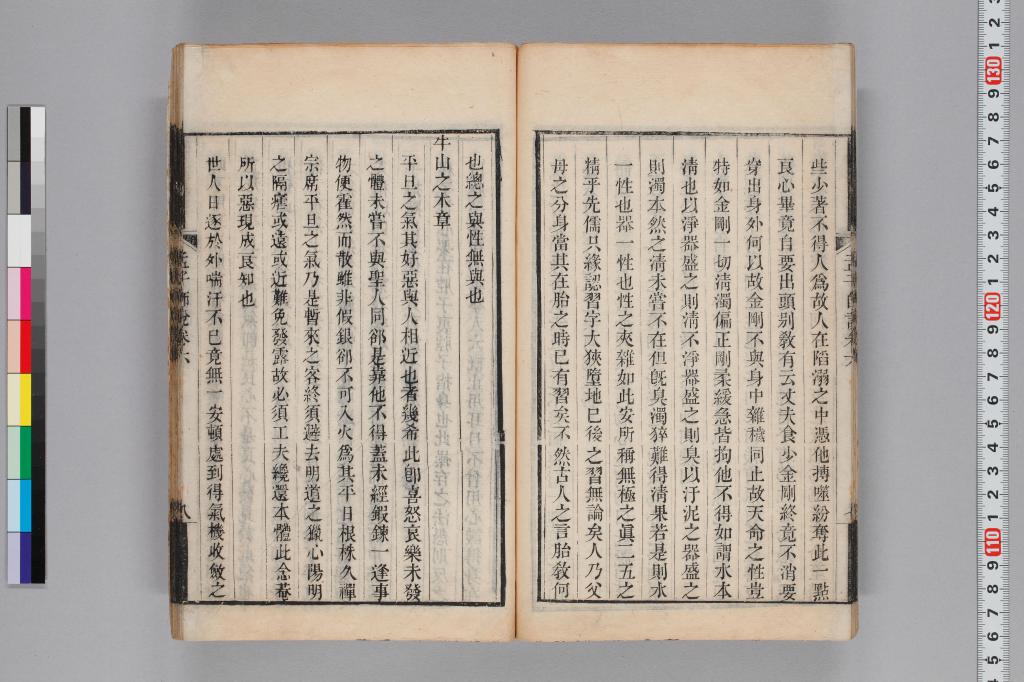 些少著不得人爲故人在陷溺之中憑他搏噬紛奪此一點
良心畢竟自要出頭別教有云丈夫食少金剛終竟不消要
穿出身外何以故金剛不與身中雜穢同止故天命之性豈
特如金剛一切淸濁偏正剛柔緩急皆拘他不得如謂水本
淸也以淨器盛之則淸不淨器盛之則臭以汙泥之器盛之
則濁本然之淸未嘗不在但旣臭濁猝難得淸果若是則水
一性也器一性也性之夾雜如此安所稱無極之眞二五之
精乎先儒只緣認習字大狹墮地已後之習無論矣人乃父
母之分身當其在胎之時已有習矣不然古人之言胎敎何
也總之與性無與也
牛山之木章
平旦之氣其好惡與人相近也者幾希此卽喜怒哀樂未發
之體未嘗不與聖人同郤是靠他不得蓋未經鍜鍊一逢事
物便霍然而散雖非假銀郤不可入火爲其平日根株久禪
宗席平旦之氣乃是暫來之客終須避去明道之獵心陽明
之隔瘧或遠或近難免發露故必須工夫纔還本體此念菴
所以惡現成良知也
世人日逐於外喘汗不已竟無一安頓處到得氣機收斂之
孟子師說卷六
八